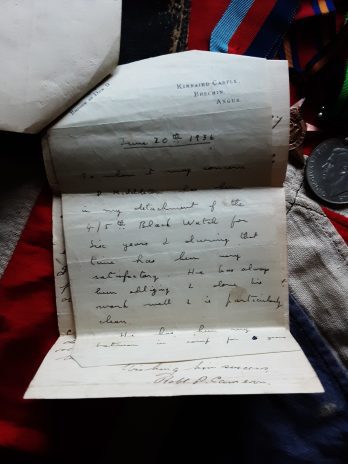 Kinnaird Castle,
Brechin,
Angus.
June 20th 1936
To whom it may concern
in my detachment of the
4/5th Black Watch for
six years & during that
time has been very
satisfactory. He has always
been obliging & done his
work well & is particularly
clean.
He has been my
batman in camp for
Wishing him success,